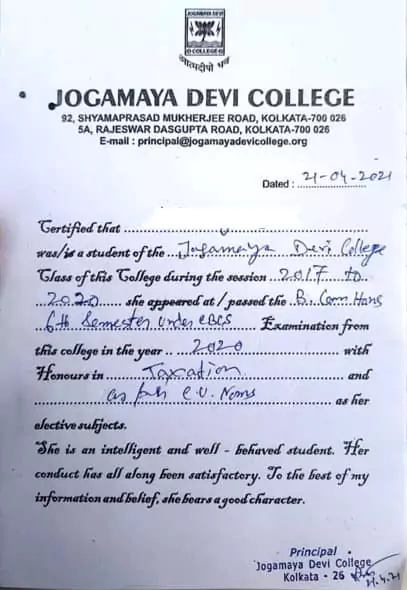 JOGAMAYA DEVI
COLLEGE
आत्मदीपो भव
JOGAMAYA DEVI COLLEGE
92, SHYAMAPRASAD MUKHERJEE ROAD, KOLKATA-700 026
5A, RAJESWAR DASGUPTA ROAD, KOLKATA-700 026
E-mail : principal@jogamayadevicollege.org
Dated : 21-04-2021
Certified that
was/is a student of the Jogamaya Devi College
Class of this College during the session 2017 to
2020 she appeared at / passed the B. Com Hons
6th Semester Under CBCS Examination from
this college in the year 2020 with
Honours in Taxation and
as per C.U. Norms as her
elective subjects.
She is an intelligent and well - behaved student. Her
conduct has all along been satisfactory. To the best of my
information and belief, she bears a good character.
Principal
Jogamaya Devi College
Kolkata - 26
21.4.21